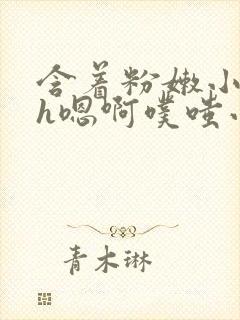 含着粉嫩小
h嗯啊噗嗤小
青木琳